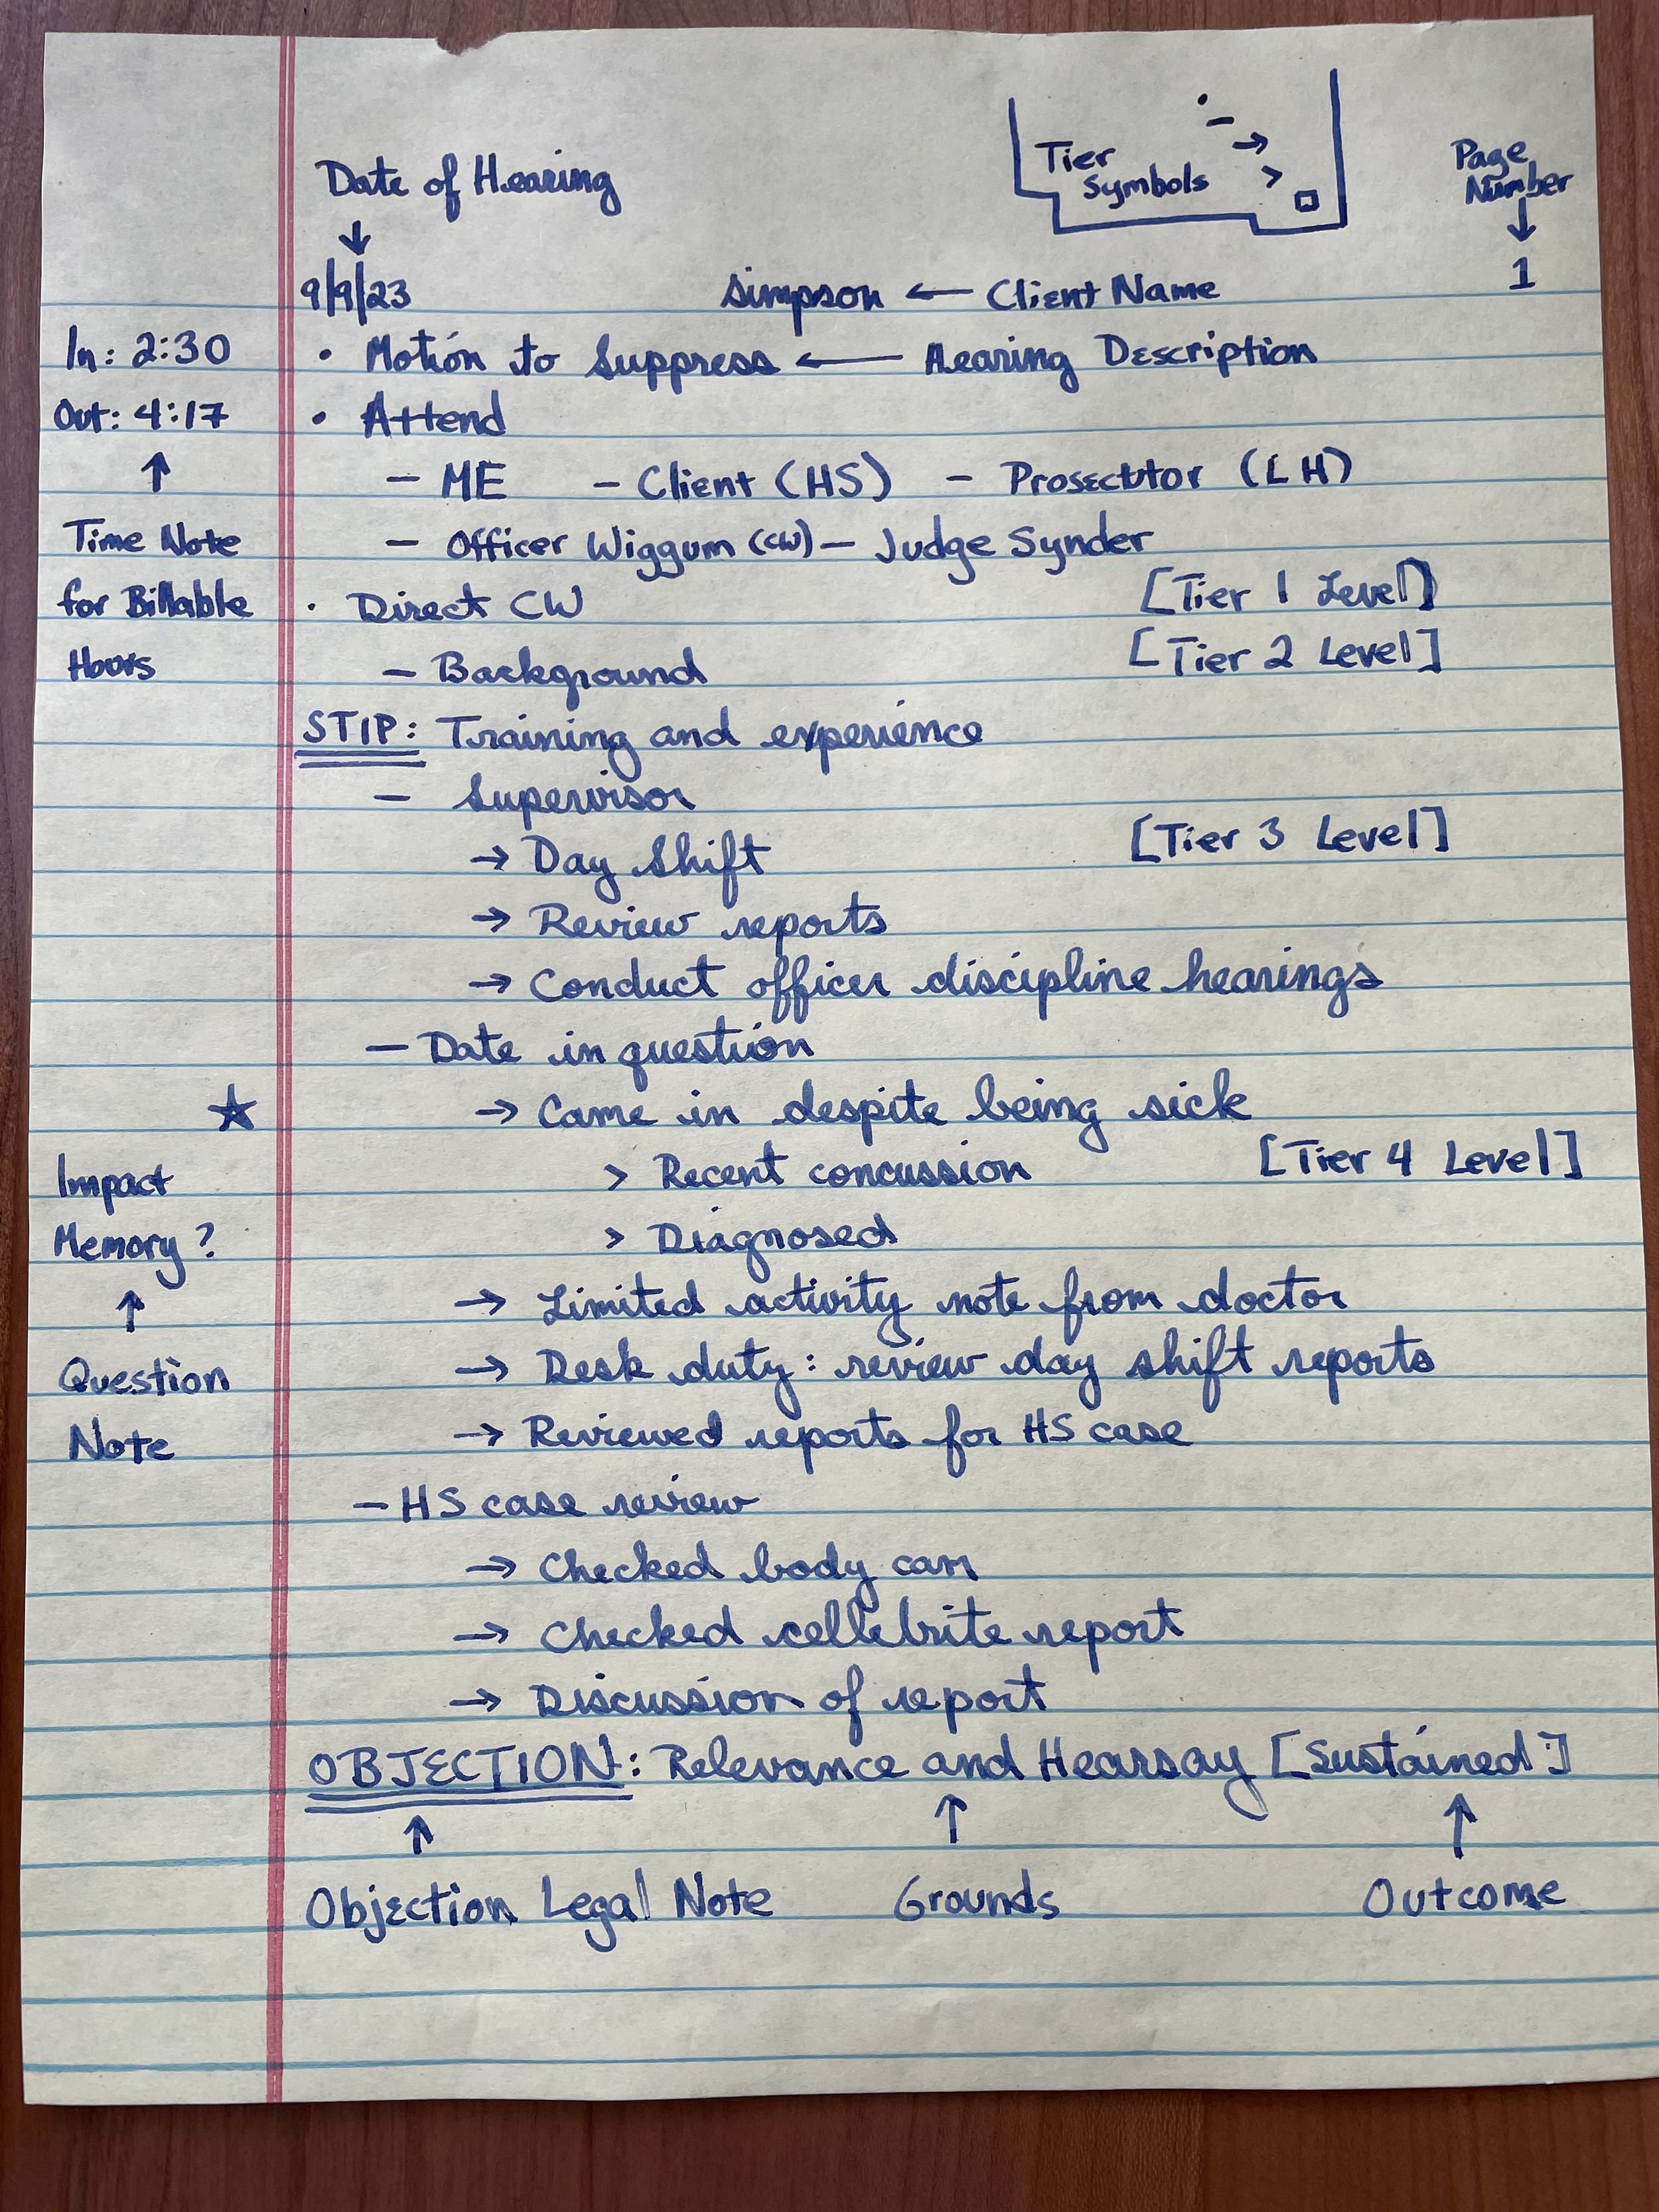 Date of Hearing
Tier Symbols
• – → > □
Page Number
↓
↓
9/9/23 Simpson ← Client Name 1
In: 2:30 • Motion to Suppress ← Hearing Description
Out: 4:17 • Attend
↑ – ME – Client (HS) – Prosecutor (LH)
Time Note – Officer Wiggum (CW) – Judge Synder
for Billable • Direct CW [Tier 1 Level]
Hours – Background [Tier 2 Level]
STIP: Training and experience
– Supervisor
→ Day shift [Tier 3 Level]
→ Review reports
→ Conduct officer discipline hearings
– Date in question
☆ → Came in despite being sick
Impact > Recent concussion [Tier 4 Level]
Memory? > Diagnosed
↑ → Limited activity note from doctor
Question → Desk duty: review day shift reports
Note → Reviewed reports for HS case
– HS case review
→ Checked body cam
→ Checked cellebrite report
→ Discussion of report
OBJECTION: Relevance and Hearsay [Sustained]
↑ ↑ ↑
Objection Legal Note Grounds Outcome